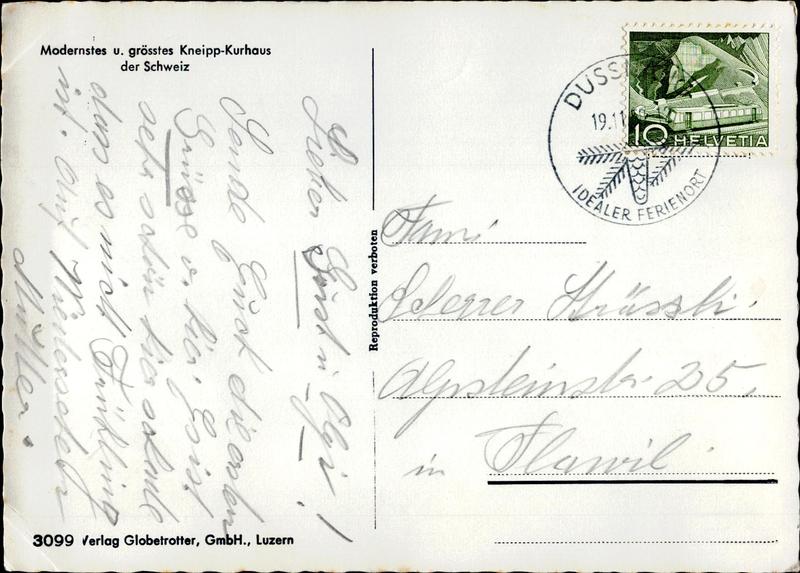 Modernstes u. grösstes Kneipp-Kurhaus
der Schweiz
Lieber Göst u. Olgi!
Sende Euch die ersten
Grüsse v. hier. Es ist
sehr schön hier ohne
dass es nicht Frühling
ist. Auf Wiedersehen
Mutter.
3099 Verlag Globetrotter, GmbH., Luzern
Reproduktion verboten
19.11
IDEALER FERIENORT
10 HELVETIA
Fami
Strässli.
Alpsteinstr. 25,
in Flawil.